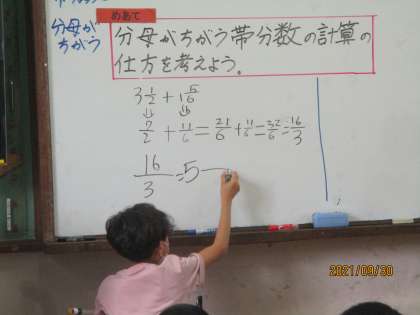 めあて
分母が
ちがう
分母がちがう帯分数の計算の
仕方を考えよう。
3 1/2 + 1 5/6
7/2 + 11/6 = 21/6 + 11/6 = 32/6 = 16/3
16/3 = 5
2021/09/30